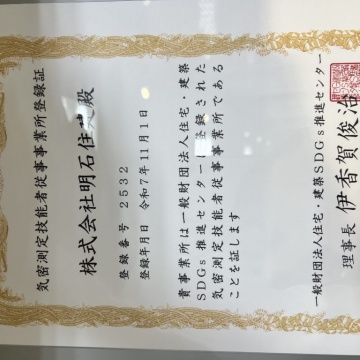 気密測定技能者従事事業所登録証
株式会社明石住建殿
登録番号 2532
登録年月日 令和7年11月1日
貴事業所は一般財団法人住宅・建築
SDGs推進センターに登録された
気密測定技能者従事事業所である
ことを証します
一般財団法人住宅・建築SDGs推進センター
理事長 伊香賀俊治